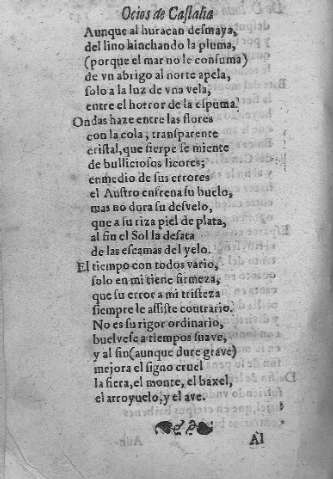 Ocios de Castalia
Aunque al huracan desmaya,
del lino hinchando la pluma,
(porque el mar no le consuma)
de vn abrigo al norte apela,
solo a la luz de vna vela,
entre el horror de la espuma.
Ondas haze entre las flores
con la cola, transparente
cristal, que sierpe se miente
de bulliciosos licores;
enmedio de sus errores
el Austro enfrena su buelo,
mas no dura su desvelo,
que a su riza piel de plata,
al fin el Sol la desata
de las escamas del yelo.
El tiempo con todos vario,
solo en mi tiene firmeza,
que su error a mi tristeza
siempre le assiste contrario.
No es su rigor ordinario,
buelvese a tiempos suave,
y al fin (aunque dure grave)
mejora el signo cruel
la fiera, el monte, el baxel,
el arroyuelo, y el ave.
Al